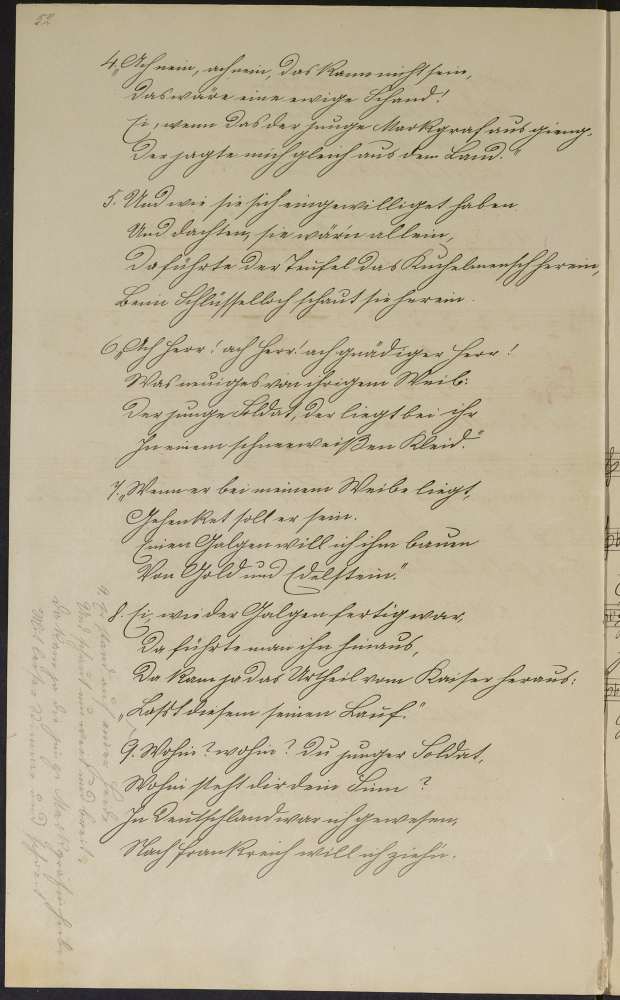 52
4. „Ach nein, ach nein, das kann nicht sein,
Das wäre eine ewige Schand!
Ei, wenn das der junge Markgraf aus gieng,
Der jagte mich gleich aus dem Land.“
5. Und wie sie sich eingewilliget haben
Und dachten, sie wär'n allein,
Da führte der Teufel das Kuchelmensch herein,
Beim Schlüsselloch schaut sie herein.
6. „Ach Herr! ach Herr! ach gnädiger Herr!
Was neuiges von ihrigem Weib:
Der junge Soldat, der liegt bei ihr
In einem schneeweißen Kleid.“
7. „Wenn er bei meinem Weibe liegt,
Gehenket soll er sein.
Einen Galgen will ich ihm bauen
Von Gold und Edelstein.“
8. Ei, wie der Galgen fertig war,
Da führte man ihn hinaus,
Da kam ja das Urtheil vom Kaiser heraus:
„Lasst diesem seinen Lauf.“
9. Wohin? wohin? Du junger Soldat,
Wohin steht dir dein Sinn?
In Deutschland war ich gewesen,
Nach Frankreich will ich ziehn.